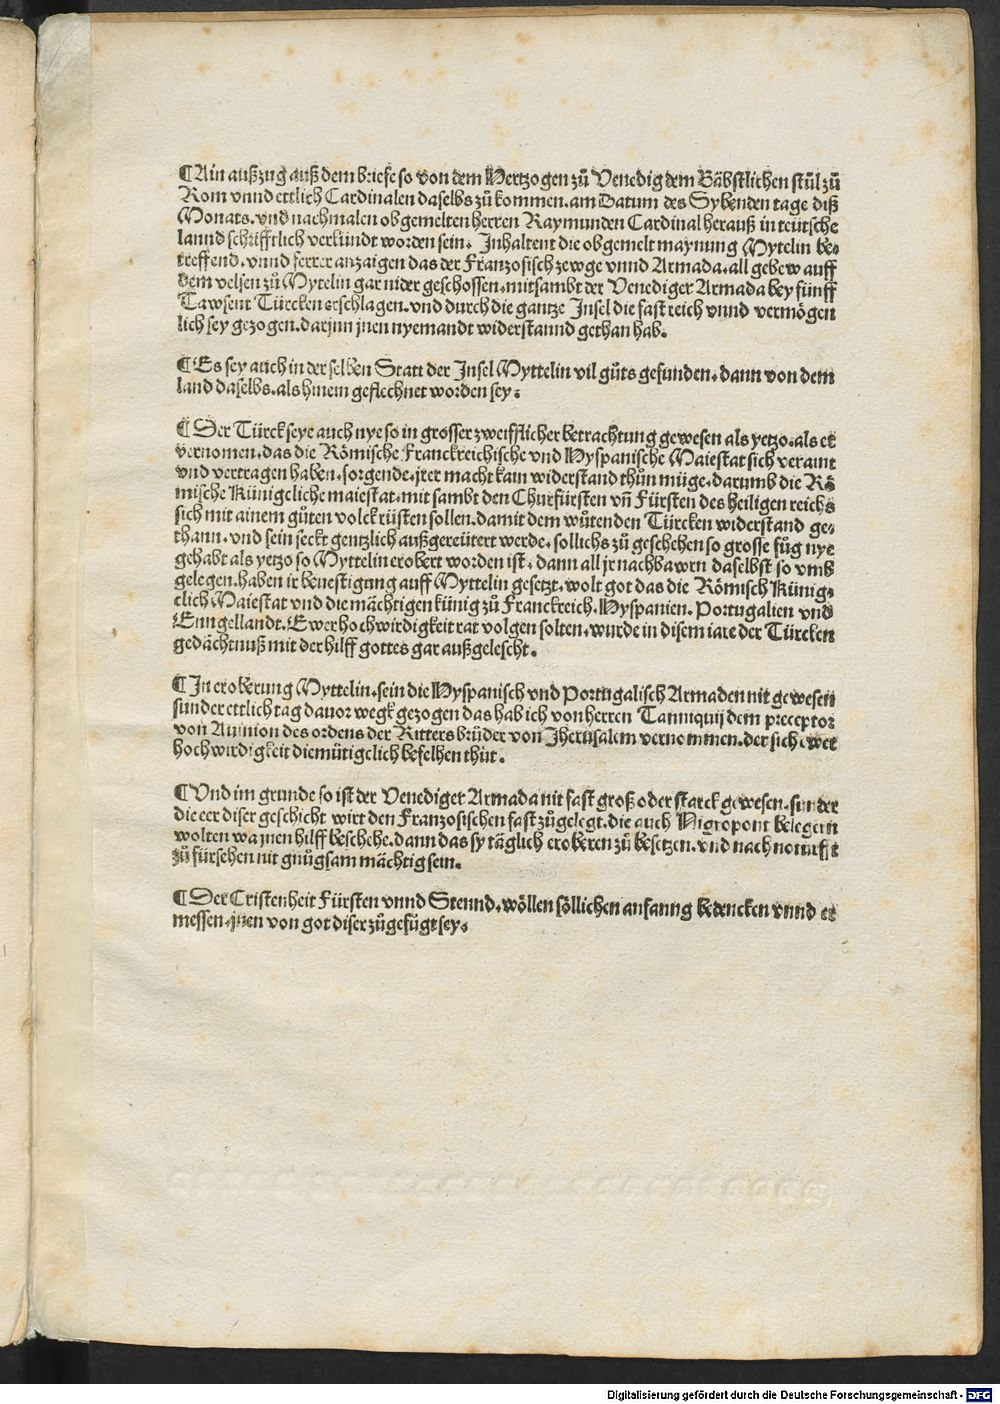 ¶Ain außzug auß dem briefe so von dem Hertzogen zů Venedig dem Bäbstlichen stůl zů
Rom vnnd ettlich Cardinalen daselbs zů kommen. am Datum des Sybenden tage diß
Monats. vnd nachmalen obgemelten herren Raymunden Cardinal herauß in teutsche
lannd schrifftlich verkündt worden sein. Inhaltent die obgemelt maynung Mytelin be⸗
treffend. vnnd ferrer anzaigen das der Franzosisch zewge vnnd Armada. all gebew auff
dem velsen zů Mytelin gar nider geschossen. mitsambt der Venediger Armada bey fünff
Tawsent Türcken erschlagen. vnd durch die gantze Insel die fast reich vnnd vermögen
lich sey gezogen. darjnn jnen nyemandt widerstannd gethan hab.
¶Es sey auch in der selben Statt der Insel Myttelin vil gůts gefunden. dann von dem
land daselbs. als hinein geflechnet worden sey.
¶Der Türck seye auch nye so in grosser zweifflicher betrachtung gewesen als yetzo. als er
vernomen. das die Römische Franckreichische vnd Hyspanische Maiestat sich veraint
vnd vertragen haben. sorgende. jrer macht kain widerstand thůn müge. darumb die Rö
mische Künigcliche maiestat. mit sambt den Churfürsten vn̄ Fürsten des heiligen reichs
sich mit ainem gůten volck rüsten sollen. damit dem wůtenden Türcken widerstand ge⸗
thann. vnd sein seckt gentzlich außgereütert werde. sollichs zů geschehen so grosse fůg nye
gehabt als yetzo so Myttelin erobert worden ist. dann all jr nachbawrn daselbst so vmb
gelegen. haben ir beuestigung auff Myttelin gesetzt. wolt got das die Römisch Künig⸗
clich Maiestat vnd die mächtigen künig zů Franckreich. Hyspanien. Portugalien vnd
Enngellandt. Ewer hochwirdigkeit rat volgen solten. wurde in disem iare der Türcken
gedächtnuß mit der hilff gottes gar außgelescht.
¶In eroberung Myttelin. sein die Hyspanisch vnd Portugalisch Armaden nit gewesen
sunder ettlich tag dauor wegk gezogen das hab ich von herren Tanniquij dem preceptor
von Auinion des ordens der Ritters brüder von Jherusalem vernommen. der sich ewer
hochwirdigkeit diemütigclich befelhen thůt.
¶Vnd im grunde so ist der Venediger Armada nit fast groß oder starck gewesen. sunder
die eer diser geschicht wirt den Franzosischen fast zůgelegt. die auch Nigropont belegern
wolten wa jnen hilff beschehe. dann das sy täglich eroberen zů besetzen. vnd nach notturfft
zů fürsehen nit gnůgsam mächtig sein.
¶Der Cristenheit Fürsten vnnd Stennd. wöllen söllichen anfanng bedencken vnnd er
messen. jnen von got diser zůgefügt sey.
Digitalisierung gefördert durch die Deutsche Forschungsgemeinschaft - DFG